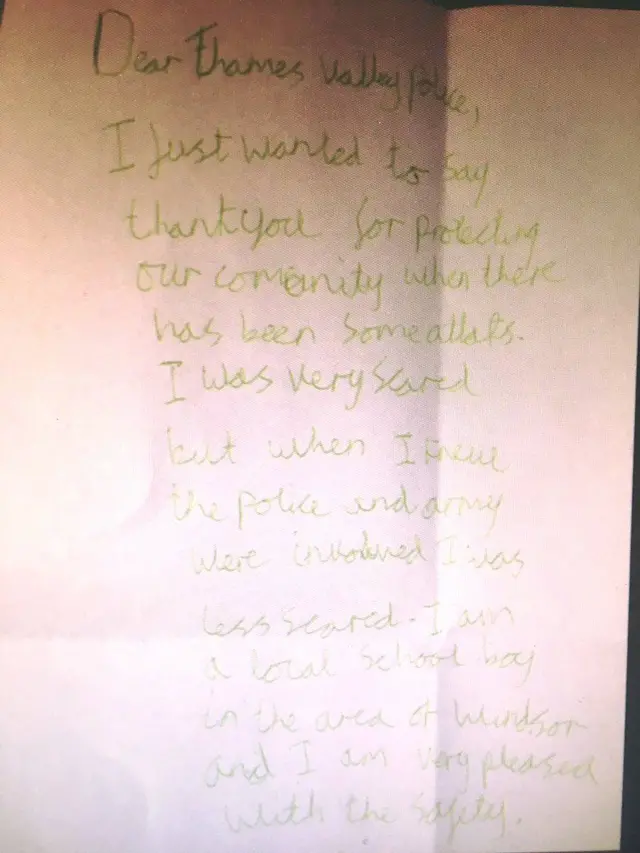 Dear Thames Valley Police,
I Just wanted to say
thankyou for protecting
our comeunity when there
has been some attaks.
I was very scared
but when I knew
the police and army
were involved I was
less scared. I am
a local school boy
in the area of Windsor
and I am very pleased
with the safety.